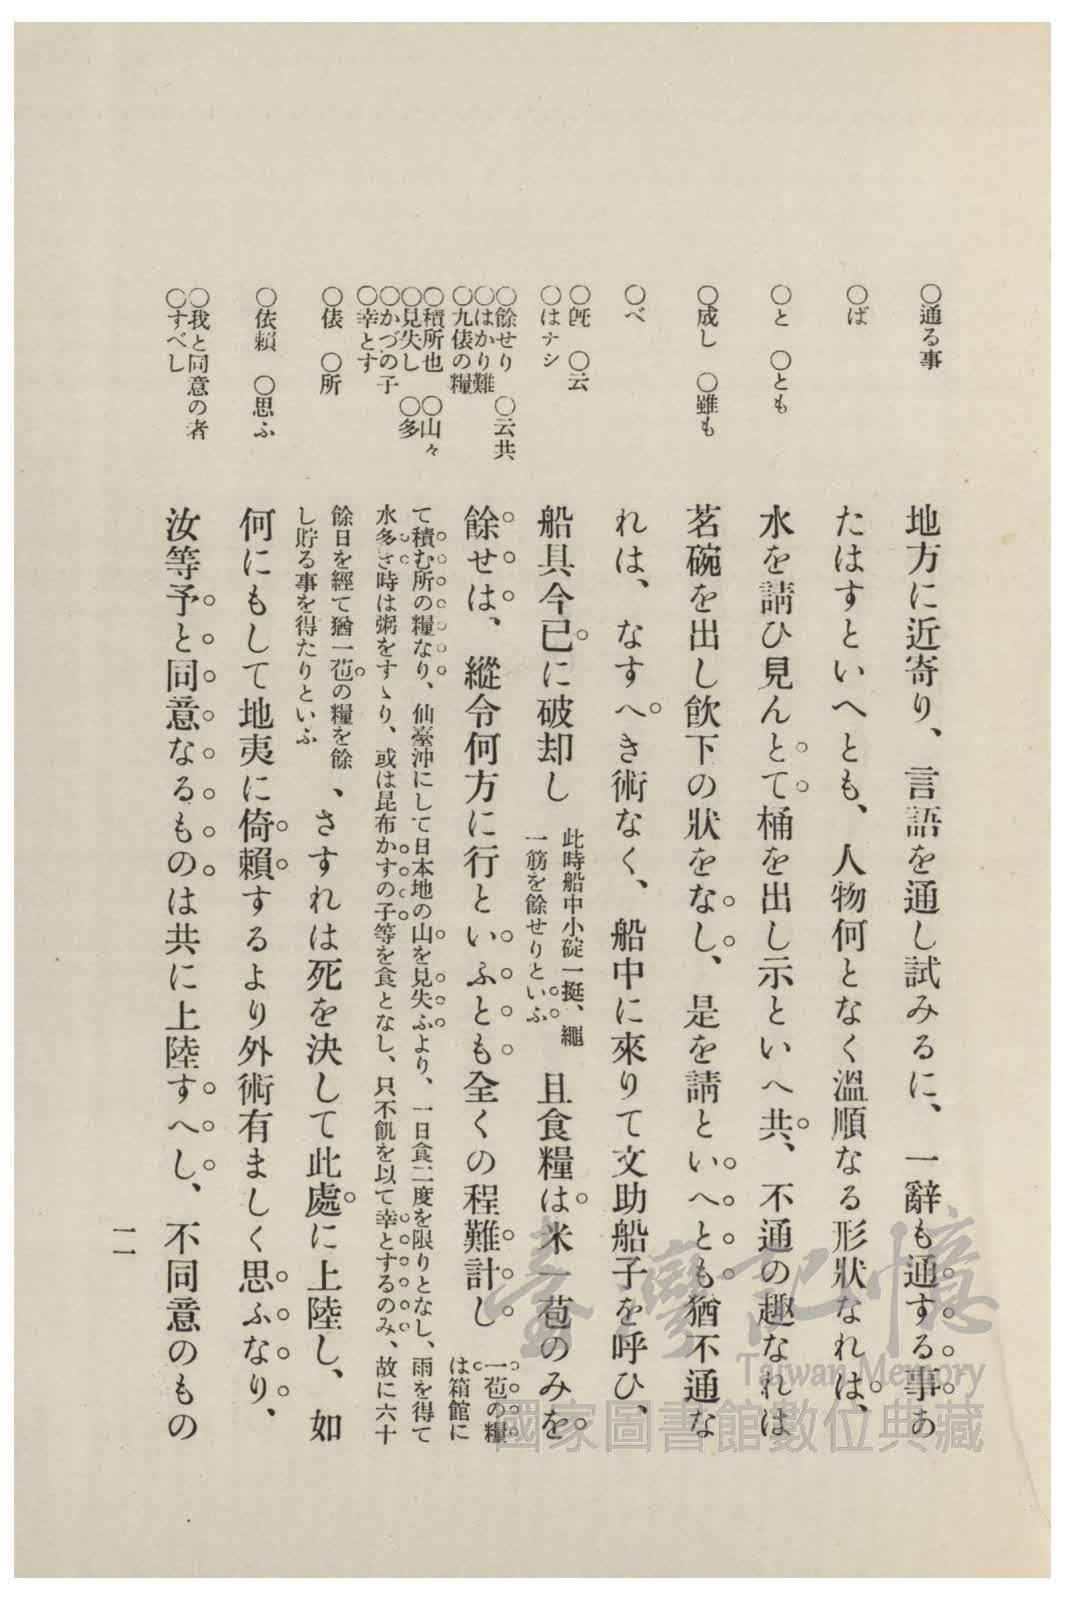 ○通る事
○ば
○と　○とも
○成し　○雖も
○べ
○旣　○云
○はナシ
○餘せり　○云共
○はかり難
○九俵の糧
○積所也　○山々
○見失し　○多
○かづの子
○幸とす
○俵　○所
○依頼　○思ふ
○我と同意の者
○すべし
地方に近寄り、言語を通し試みるに、一辭も通する事あ
たはすといへとも、人物何となく溫順なる形狀なれは、
水を請ひ見んとて桶を出し示といへ共、不通の趣なれは
茗碗を出し飮下の狀をなし、是を請といへとも猶不通な
れは、なすへき術なく、船中に來りて文助船子を呼ひ、
船具今已に破却し
此時船中小碇一挺、繩
一筋を餘せりといふ
且食糧は米一苞のみを
餘せは、縱令何方に行といふとも全くの程難計し
一苞の糧
は箱館に
て積む所の糧なり、仙臺沖にして日本地の山を見失ふより、一日食二度を限りとなし、雨を得て
水多き時は粥をすゝり、或は昆布かすの子等を食となし、只不飢を以て幸とするのみ、故に六十
餘日を經て猶一苞の糧を餘
し貯る事を得たりといふ
、さすれは死を決して此處に上陸し、如
何にもして地夷に倚賴するより外術有ましく思ふなり、
汝等予と同意なるものは共に上陸すへし、不同意のもの
一一
臺灣記憶
Taiwan Memory
國家圖書館數位典藏